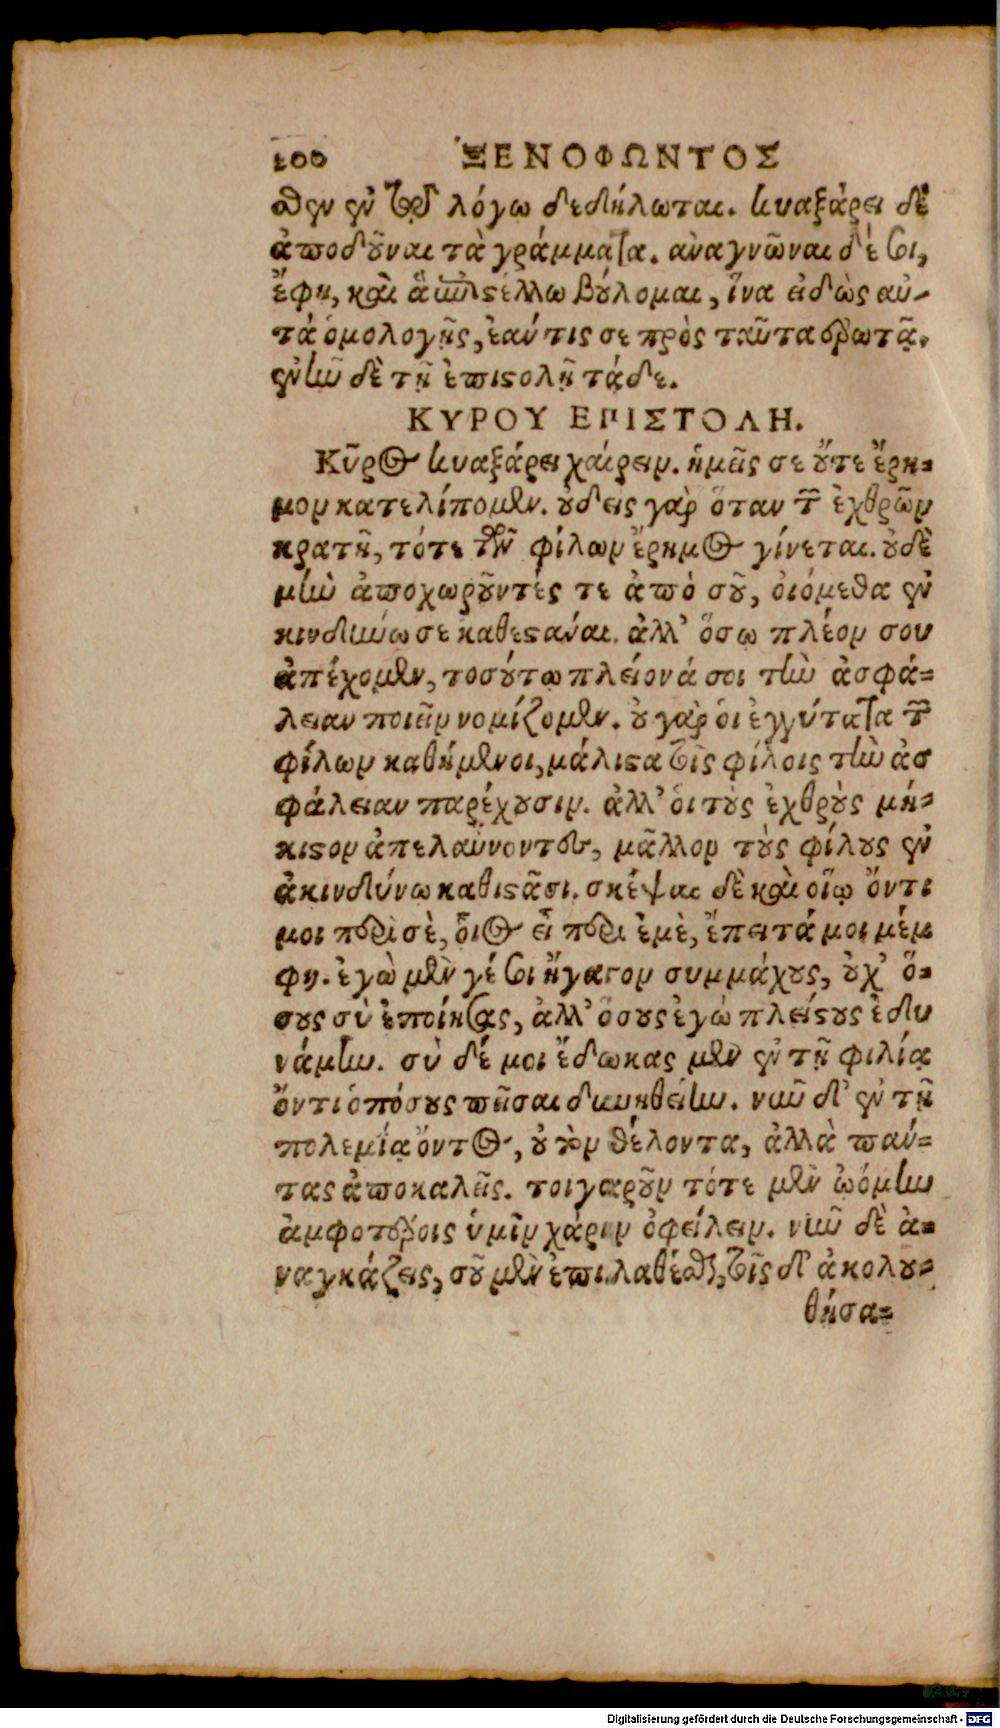 200 ΞΕΝΟΦΩΝΤΟΣ
θεν ἐν τῷ λόγῳ δεδήλωται. κυαξάρει δὲ
ἀποδοῦναι τὰ γράμματα. ἀναγνῶναι δέ σοι,
ἔφη, καὶ ἃ ἐπιστέλλω βούλομαι, ἵνα εἰδὼς αὐ-
τὰ ὁμολογῇς, ἐάν τις σε πρὸς ταῦτα ἐρωτᾷ.
ἐνῆν δὲ τῇ ἐπιστολῇ τάδε.
ΚΥΡΟΥ ΕΠΙΣΤΟΛΗ.
Κῦρος κυαξάρει χαίρειν. ἡμεῖς σε οὔτε ἔρη-
μον κατελίπομεν. οὐδεὶς γὰρ ὅταν τῶν ἐχθρῶν
κρατῇ, τότε τῶν φίλων ἔρημος γίνεται. οὐδὲ
μὴν ἀποχωροῦντές τε ἀπὸ σοῦ, οἰόμεθα ἐν
κινδύνῳ σε καθεστάναι. ἀλλ' ὅσῳ πλέον σου
ἀπέχομεν, τοσούτῳ πλείονά σοι τὴν ἀσφά-
λειαν ποιεῖν νομίζομεν. οὐ γὰρ οἱ ἐγγύτατα τῶν
φίλων καθήμενοι, μάλιστα τοῖς φίλοις τὴν ἀσ
φάλειαν παρέχουσιν. ἀλλ' οἱ τοὺς ἐχθροὺς μή-
κιστον ἀπελαύνοντες, μᾶλλον τοὺς φίλους ἐν
ἀκινδύνῳ καθιστᾶσι. σκέψαι δὲ καὶ οἵῳ ὄντι
μοι περὶ σὲ, οἷος εἶ περὶ ἐμὲ, ἔπειτά μοι μέμ
φῃ. ἐγὼ μέν γέ σοι ἤγαγον συμμάχους, οὐχ ὅ-
σους σὺ ἐποίησας, ἀλλ' ὅσους ἐγὼ πλείστους ἐδυ
νάμην. σὺ δέ μοι ἔδωκας μὲν ἐν τῇ φιλίᾳ
ὄντι ὁπόσους πεῖσαι δυνηθείην. νῦν δ' ἐν τῇ
πολεμίᾳ ὄντος, οὐ τὸν θέλοντα, ἀλλὰ πάν-
τας ἀποκαλεῖς. τοιγαροῦν τότε μὲν ᾠόμην
ἀμφοτέροις ὑμῖν χάριν ὀφείλειν. νῦν δὲ ἀ-
ναγκάζεις, σοῦ μὲν ἐπιλαθέσθαι, τοῖς δ' ἀκολου-
θήσα-
Digitalisierung gefördert durch die Deutsche Forschungsgemeinschaft - DFG